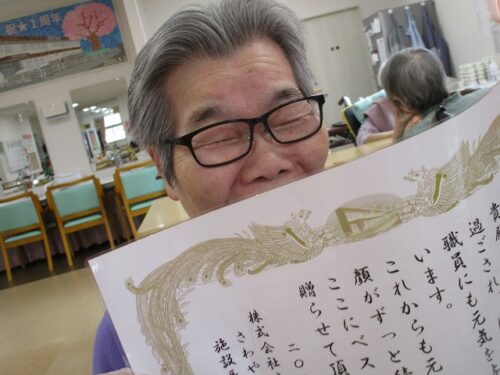 祝★1周年
過ごされ
職員にも元気を
います。
これからも元
顔がずっと
ここにベス
贈らせて頂
二〇
株式会社
さわや
施設